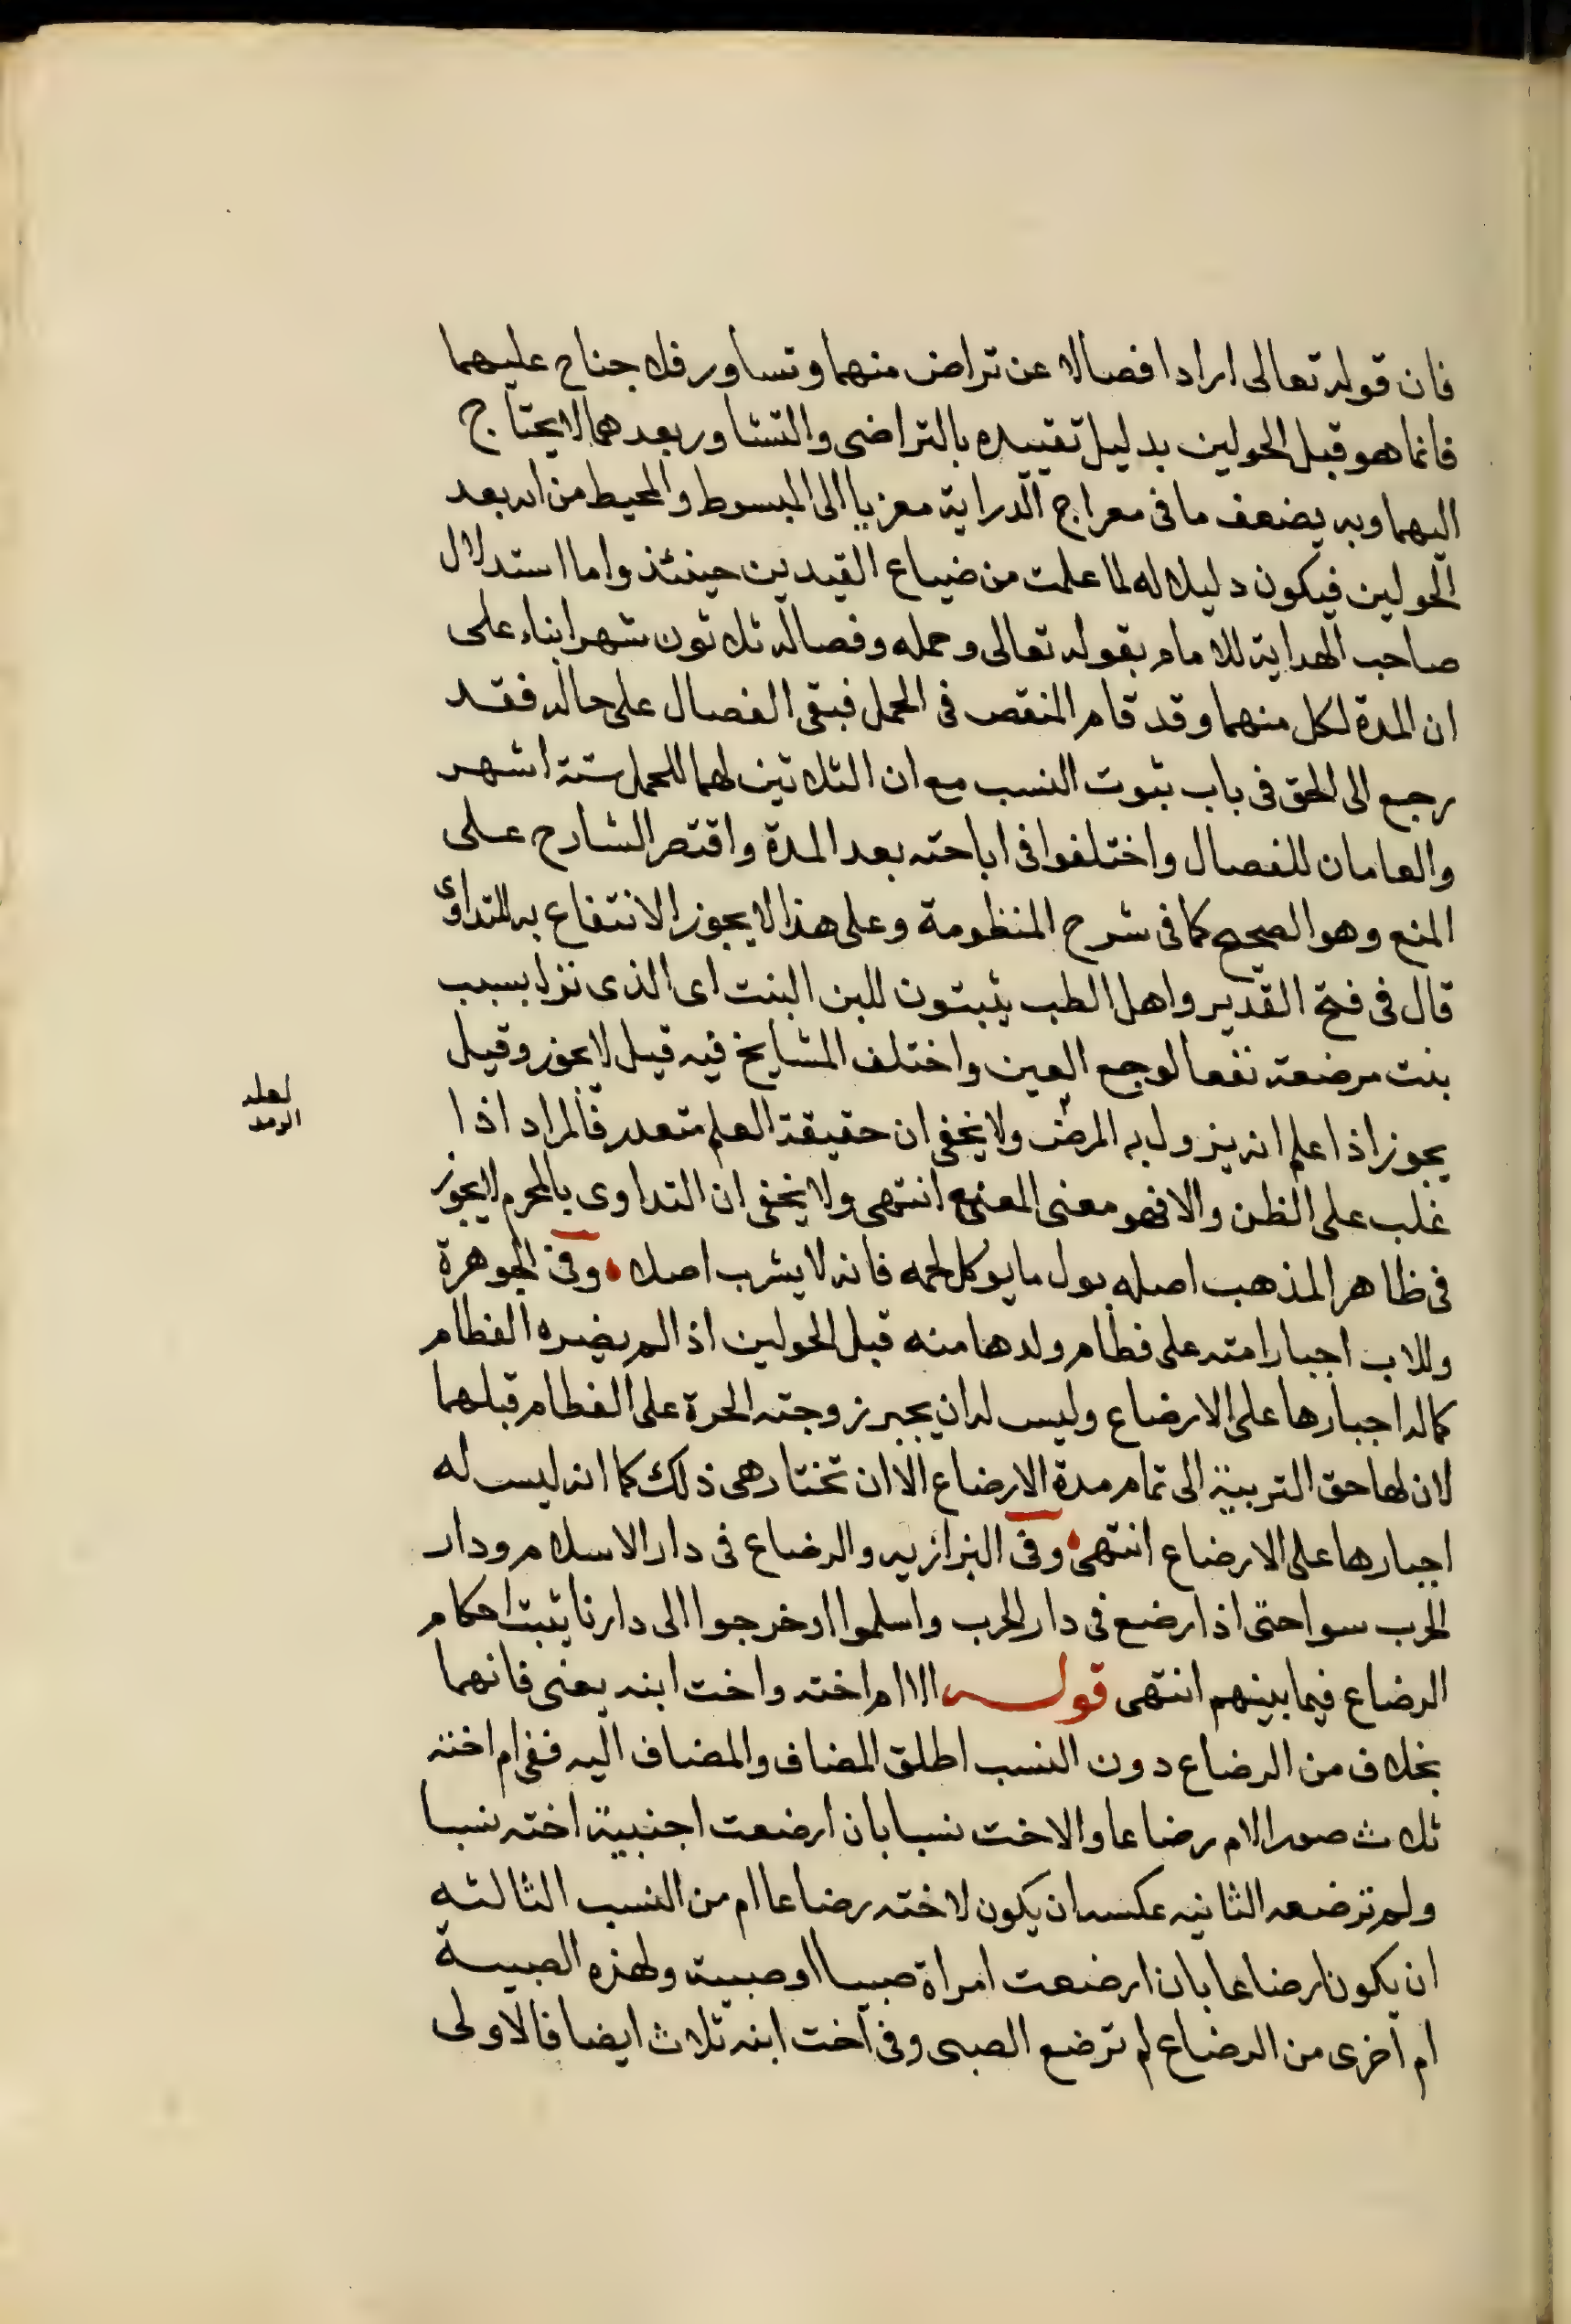 فان قوله تعالى اراد افصالا عن تراض منهما وتساور فلا جناح عليهما
فانما هو قبل الحولين بدليل تقييده بالتراضى والتشاور بعدهما لا يحتاج
اليهما وبه يضعف ما فى معراج الدراية معزيا الى المبسوط والمحيط من انه بعد
الحولين فيكون دليلا له لما علمت من ضياع القيدين حينئذ واما استدلال
صاحب الهداية للامام بقوله تعالى وحمله وفصاله ثلاثون شهرا بناء على
ان المدة لكل منهما وقد قام المنقص فى الحمل فبقى الفصال على حاله فقد
رجع الى الحق فى باب ثبوت النسب مع ان الثلاثين لهما للحمل ستة اشهر
والعامان للفصال واختلفوا فى اباحته بعد المدة واقتصر الشارح على
المنع وهو الصحيح كما فى شرح المنظومة وعلى هذا لا يجوز الانتفاع به للتداوى
قال فى فتح القدير واهل الطب يثبتون للبن البنت اى الذى نزل بسبب
بنت مرضعة نفعا لوجع العين واختلف المشايخ فيه قيل لا يجوز وقيل
يجوز اذا علم انه يزول به المرض ولا يخفى ان حقيقة العلم متعدر فالمراد اذا
لعله
الرمد
غلب على الظن والا فهو معنى المنع انتهى ولا يخفى ان التداوى بالمحرم لا يجوز
فى ظاهر المذهب اصله بول ما يوكل لحمه فانه لا يشرب اصلا وفى الجوهرة
وللاب اجبار امته على فطام ولدها منه قبل الحولين اذا لم يضره الفطام
كما له اجبارها على الارضاع وليس له ان يجبر زوجته الحرة على الفطام قبلهما
لان لها حق التربية الى تمام مدة الارضاع الا ان تختار هى ذلك كما انه ليس له
اجبارها على الارضاع انتهى وفى البزازيه والرضاع فى دار الاسلام ودار
الحرب سوا حتى اذا رضع فى دار الحرب واسلموا او خرجوا الى دارنا يثبت احكام
الرضاع فيما بينهم انتهى قوله الا ام اخته واخت ابنه يعنى فانهما
بخلاف من الرضاع دون النسب اطلق المضاف والمضاف اليه ففى ام اخته
ثلاث صور الام رضاعا والاخت نسبا بان ارضعت اجنبية اخته نسبا
ولم ترضعه الثانيه عكسه ان يكون لاخته رضاعا ام من النسب الثالثه
ان يكونا رضاعا بان ارضعت امراة صبيا او صبية ولهذه الصبيــة
ام اخرى من الرضاع لم ترضع الصبى وفى اخت ابنه ثلاث ايضا فالاولى